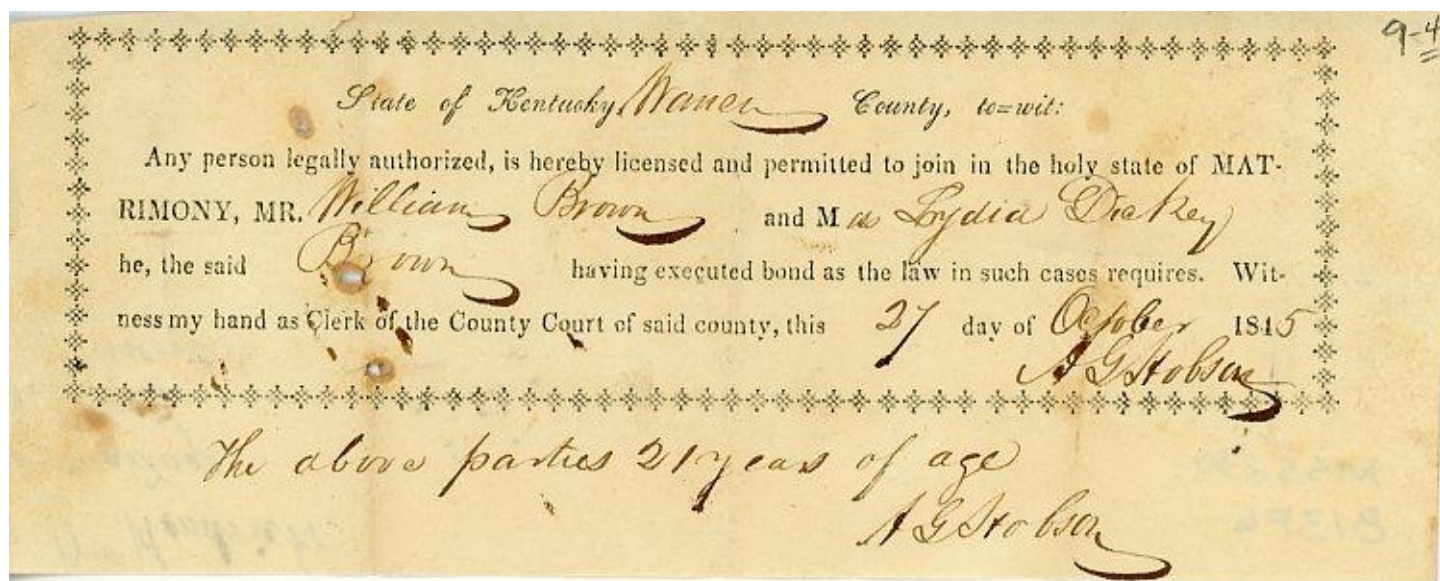 9-4
State of Kentucky, Warren County, to=wit:
Any person legally authorized, is hereby licensed and permitted to join in the holy state of MAT-
RIMONY, MR. William Brown and M Lydia Dickey
he, the said Brown having executed bond as the law in such cases requires. Wit-
ness my hand as Clerk of the County Court of said county, this 27 day of October 1845
A G Hobson
The above parties 21 years of age
A G Hobson